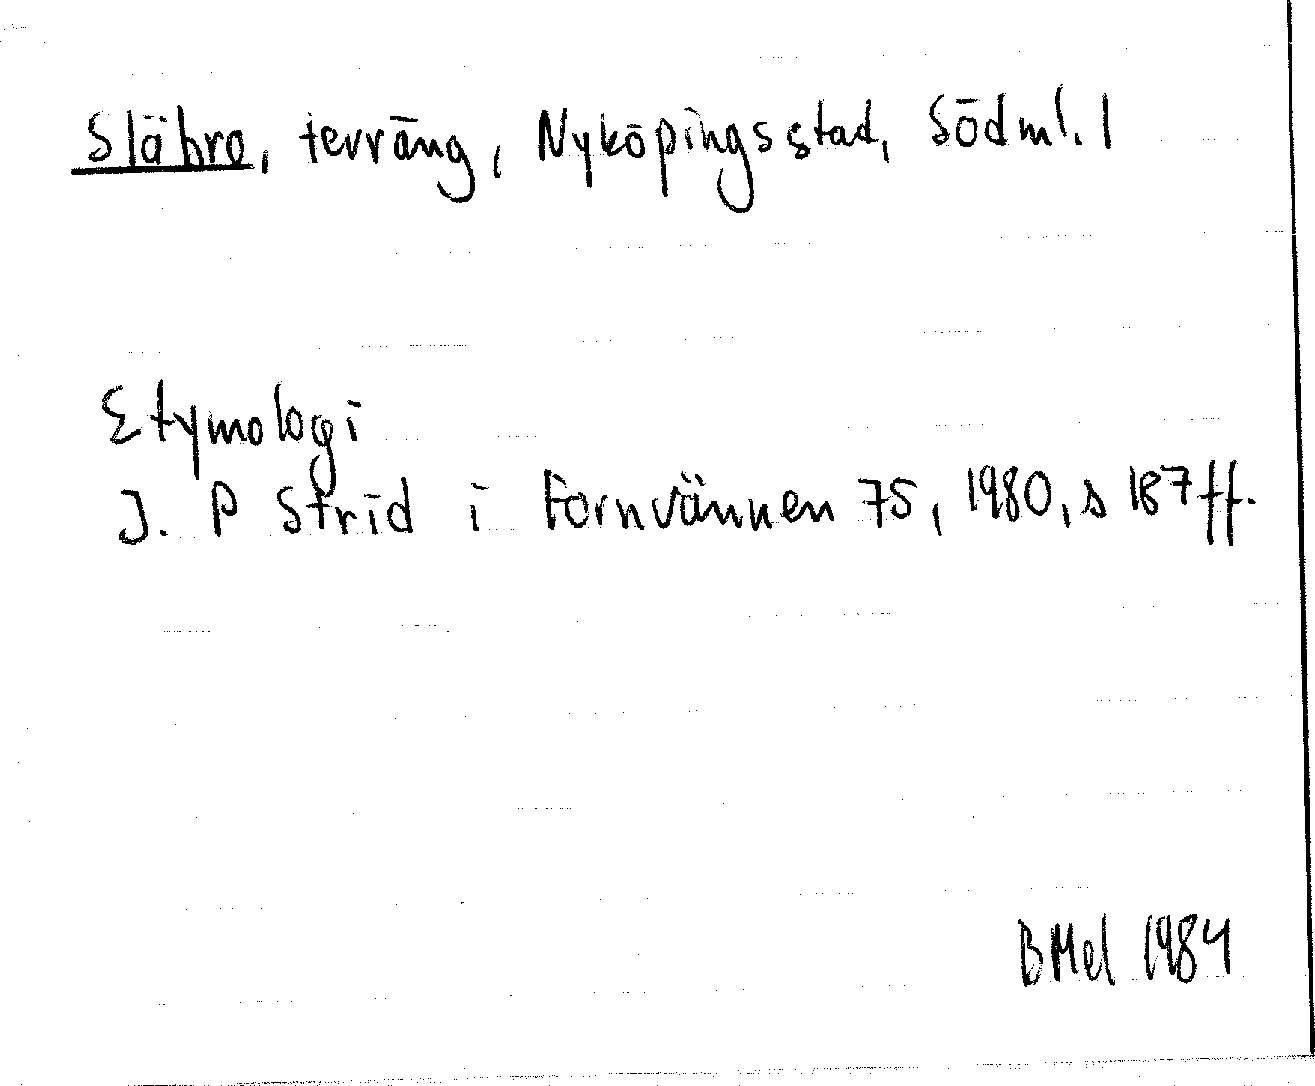 Släbro, terräng, Nyköpings stad, Södml. l
Etymologi
J. P Strid i Fornvännen 75, 1980, s 187 ff.
BMel 1984